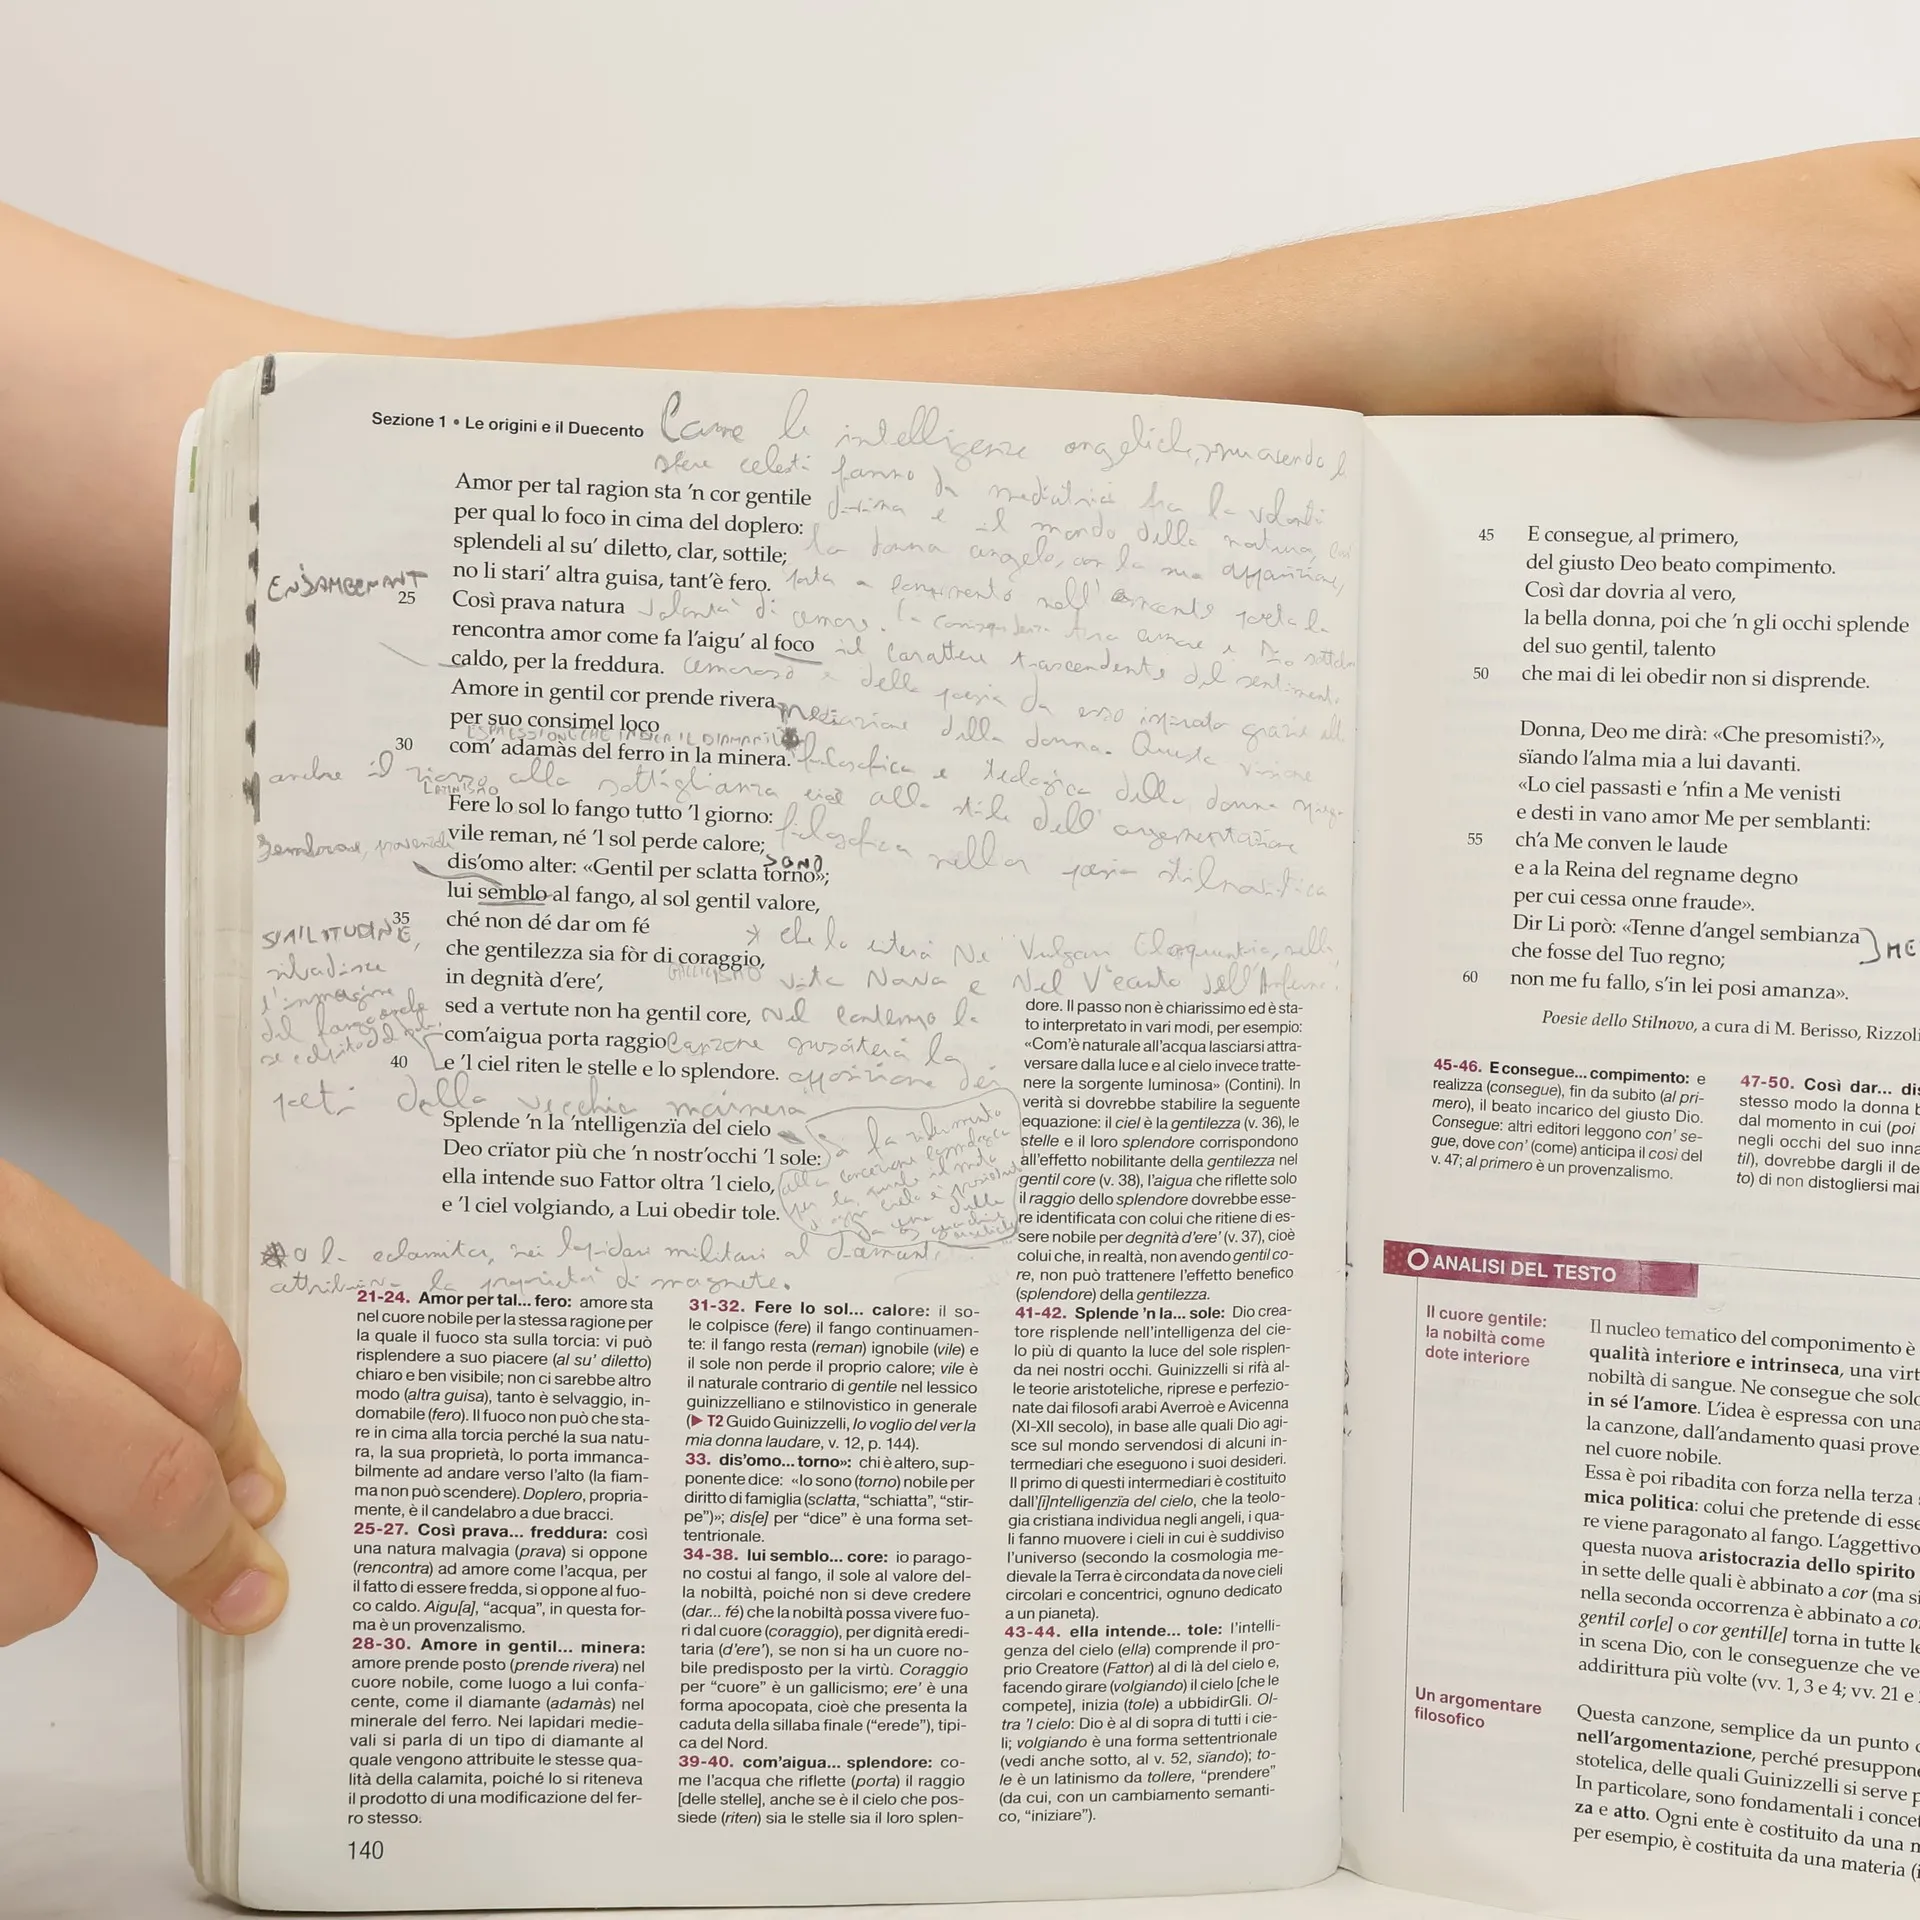 Sezione 1 • Le origini e il Duecento
Come le intelligenze angeliche, muovendo le
sfere celesti fanno da mediatrici tra la volontà
divina e il mondo della natura, così
la donna angelo, con la sua apparizione,
porta a compimento nell'amante poeta la
volontà di amore. La tra amore e Dio
il carattere trascendente del sentimento
amoroso e della poesia da esso ispirata grazie alla
mediazione della donna. Questa visione
filosofica e teologica della donna
anche il ricorso alla sottiglianza e allo stile dell'argomentazione
filosofica nella poesia stilnovistica
Amor per tal ragion sta 'n cor gentile
per qual lo foco in cima del doplero:
splendeli al su' diletto, clar, sottile;
no li stari' altra guisa, tant'è fero.
ENJAMBEMANT
25 Così prava natura
rencontra amor come fa l'aigu' al foco
caldo, per la freddura.
Amore in gentil cor prende rivera
per suo consimel loco
ESPRESSIONE CHE INDICA IL DIAMANTE
30 com' adamàs del ferro in la minera.
LATINISMO
Fere lo sol lo fango tutto 'l giorno:
vile reman, né 'l sol perde calore;
SONO
dis'omo alter: «Gentil per sclatta torno»;
lui semblo al fango, al sol gentil valore,
SIMILITUDINE,
ribadisce
l'immagine
del fango
35 ché non dé dar om fé
che gentilezza sia fòr di coraggio,
GALLICISMO
in degnità d'ere',
sed a vertute non ha gentil core,
com'aigua porta raggio
40 e 'l ciel riten le stelle e lo splendore.
* che lo Vulgari Eloquentia, nella
Vita Nova e Nel V canto dell'Inferno.
Nel la
canzone susciterà la
opposizione dei
poeti della vecchia maniera
Splende 'n la 'ntelligenzïa del cielo
Deo crïator più che 'n nostr'occhi 'l sole:
ella intende suo Fattor oltra 'l cielo,
e 'l ciel volgiando, a Lui obedir tole.
fa riferimento
alla concezione cosmologica
per la quale il moto
o la calamita, nei lapidari militari al diamante
la proprietà di magnete.
21-24. Amor per tal... fero: amore sta
nel cuore nobile per la stessa ragione per
la quale il fuoco sta sulla torcia: vi può
risplendere a suo piacere (al su' diletto)
chiaro e ben visibile; non ci sarebbe altro
modo (altra guisa), tanto è selvaggio, in-
domabile (fero). Il fuoco non può che sta-
re in cima alla torcia perché la sua natu-
ra, la sua proprietà, lo porta immanca-
bilmente ad andare verso l'alto (la fiam-
ma non può scendere). Doplero, propria-
mente, è il candelabro a due bracci.
25-27. Così prava... freddura: così
una natura malvagia (prava) si oppone
(rencontra) ad amore come l'acqua, per
il fatto di essere fredda, si oppone al fuo-
co caldo. Aigu[a], "acqua", in questa for-
ma è un provenzalismo.
28-30. Amore in gentil... minera:
amore prende posto (prende rivera) nel
cuore nobile, come luogo a lui confa-
cente, come il diamante (adamàs) nel
minerale del ferro. Nei lapidari medie-
vali si parla di un tipo di diamante al
quale vengono attribuite le stesse qua-
lità della calamita, poiché lo si riteneva
il prodotto di una modificazione del fer-
ro stesso.
31-32. Fere lo sol... calore: il so-
le colpisce (fere) il fango continuamen-
te: il fango resta (reman) ignobile (vile) e
il sole non perde il proprio calore; vile è
il naturale contrario di gentile nel lessico
guinizzelliano e stilnovistico in generale
(▶ T2 Guido Guinizzelli, Io voglio del ver la
mia donna laudare, v. 12, p. 144).
33. dis'omo... torno»: chi è altero, sup-
ponente dice: «Io sono (torno) nobile per
diritto di famiglia (sclatta, "schiatta", "stir-
pe")»; dis[e] per "dice" è una forma set-
tentrionale.
34-38. lui semblo... core: io parago-
no costui al fango, il sole al valore del-
la nobiltà, poiché non si deve credere
(dar... fé) che la nobiltà possa vivere fuo-
ri dal cuore (coraggio), per dignità eredi-
taria (d'ere'), se non si ha un cuore no-
bile predisposto per la virtù. Coraggio
per "cuore" è un gallicismo; ere' è una
forma apocopata, cioè che presenta la
caduta della sillaba finale ("erede"), tipi-
ca del Nord.
39-40. com'aigua... splendore: co-
me l'acqua che riflette (porta) il raggio
[delle stelle], anche se è il cielo che pos-
siede (riten) sia le stelle sia il loro splen-
dore. Il passo non è chiarissimo ed è sta-
to interpretato in vari modi, per esempio:
«Com'è naturale all'acqua lasciarsi attra-
versare dalla luce e al cielo invece tratte-
nere la sorgente luminosa» (Contini). In
verità si dovrebbe stabilire la seguente
equazione: il ciel è la gentilezza (v. 36), le
stelle e il loro splendore corrispondono
all'effetto nobilitante della gentilezza nel
gentil core (v. 38), l'aigua che riflette solo
il raggio dello splendore dovrebbe esse-
re identificata con colui che ritiene di es-
sere nobile per degnità d'ere' (v. 37), cioè
colui che, in realtà, non avendo gentil co-
re, non può trattenere l'effetto benefico
(splendore) della gentilezza.
41-42. Splende 'n la... sole: Dio crea-
tore risplende nell'intelligenza del cie-
lo più di quanto la luce del sole risplen-
da nei nostri occhi. Guinizzelli si rifà al-
le teorie aristoteliche, riprese e perfezio-
nate dai filosofi arabi Averroè e Avicenna
(XI-XII secolo), in base alle quali Dio agi-
sce sul mondo servendosi di alcuni in-
termediari che eseguono i suoi desideri.
Il primo di questi intermediari è costituito
dall'[i]ntelligenzïa del cielo, che la teolo-
gia cristiana individua negli angeli, i qua-
li fanno muovere i cieli in cui è suddiviso
l'universo (secondo la cosmologia me-
dievale la Terra è circondata da nove cieli
circolari e concentrici, ognuno dedicato
a un pianeta).
43-44. ella intende... tole: l'intelli-
genza del cielo (ella) comprende il pro-
prio Creatore (Fattor) al di là del cielo e,
facendo girare (volgiando) il cielo [che le
compete], inizia (tole) a ubbidirGli. Ol-
tra 'l cielo: Dio è al di sopra di tutti i cie-
li; volgiando è una forma settentrionale
(vedi anche sotto, al v. 52, sïando); to-
le è un latinismo da tollere, "prendere"
(da cui, con un cambiamento semanti-
co, "iniziare").
140
45 E consegue, al primero,
del giusto Deo beato compimento.
Così dar dovria al vero,
la bella donna, poi che 'n gli occhi splende
del suo gentil, talento
50 che mai di lei obedir non si disprende.
Donna, Deo me dirà: «Che presomisti?»,
sïando l'alma mia a lui davanti.
«Lo ciel passasti e 'nfin a Me venisti
e desti in vano amor Me per semblanti:
55 ch'a Me conven le laude
e a la Reina del regname degno
per cui cessa onne fraude».
Dir Li porò: «Tenne d'angel sembianza
che fosse del Tuo regno;
60 non me fu fallo, s'in lei posi amanza».
Poesie dello Stilnovo, a cura di M. Berisso, Rizzoli
45-46. E consegue... compimento: e
realizza (consegue), fin da subito (al pri-
mero), il beato incarico del giusto Dio.
Consegue: altri editori leggono con' se-
gue, dove con' (come) anticipa il così del
v. 47; al primero è un provenzalismo.
47-50. Così dar... dis
stesso modo la donna b
dal momento in cui (poi
negli occhi del suo inna
til), dovrebbe dargli il de
to) di non distogliersi mai
ANALISI DEL TESTO
Il cuore gentile:
la nobiltà come
dote interiore
Il nucleo tematico del componimento è
qualità interiore e intrinseca, una virt
nobiltà di sangue. Ne consegue che solo
in sé l'amore. L'idea è espressa con una
la canzone, dall'andamento quasi prove
nel cuore nobile.
Essa è poi ribadita con forza nella terza
mica politica: colui che pretende di esse
re viene paragonato al fango. L'aggettivo
questa nuova aristocrazia dello spirito
in sette delle quali è abbinato a cor (ma si
nella seconda occorrenza è abbinato a co
gentil cor[e] o cor gentil[e] torna in tutte le
in scena Dio, con le conseguenze che ve
addirittura più volte (vv. 1, 3 e 4; vv. 21 e
Un argomentare
filosofico
Questa canzone, semplice da un punto
nell'argomentazione, perché presuppone
stotelica, delle quali Guinizzelli si serve p
In particolare, sono fondamentali i concet
za e atto. Ogni ente è costituito da una m
per esempio, è costituita da una materia (i